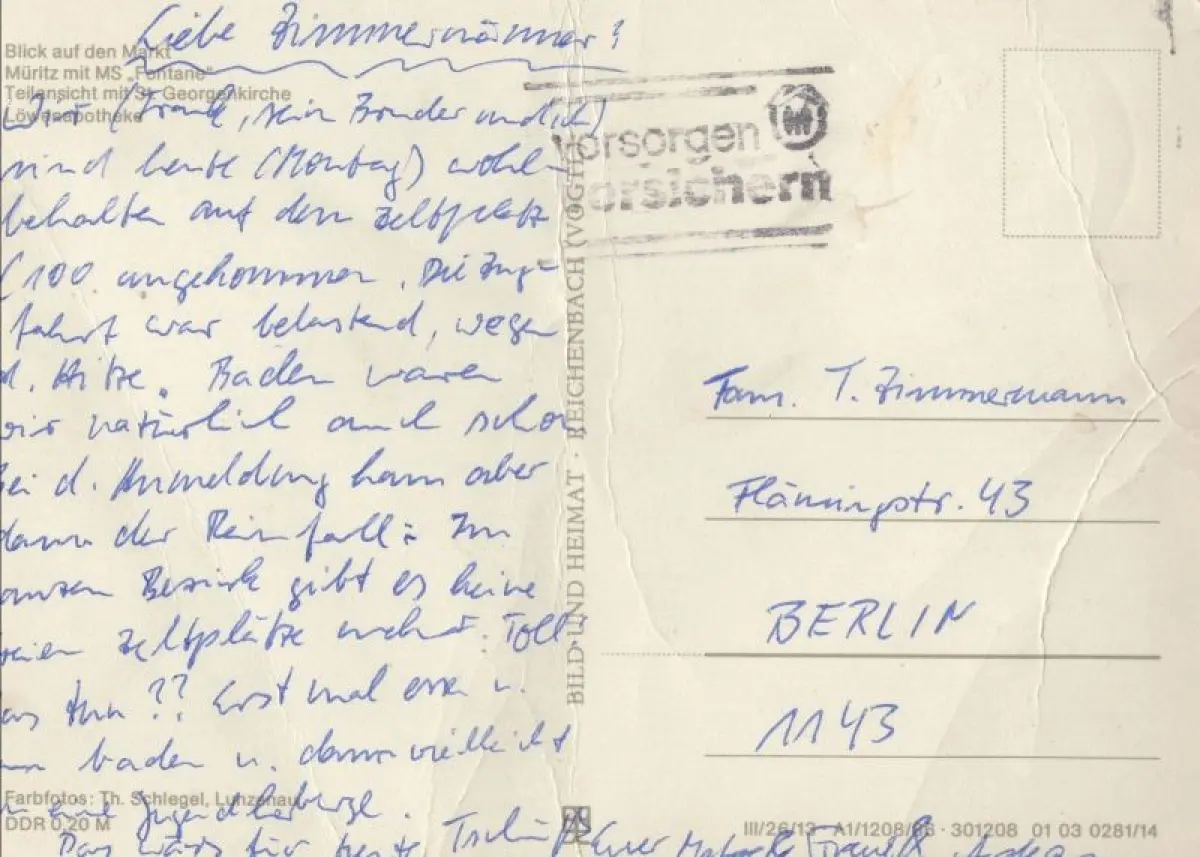 Liebe Zimmermänner!
Blick auf den Markt
Müritz mit MS „Fontane“
Teilansicht mit St. Georgenkirche
Löwenapotheke
Wir (Frank, sein Bruder und ich)
sind heute (Montag) wohl-
behalten auf dem Zeltplatz
C/100 angekommen. Die Zug-
fahrt war belastend, wegen
d. Hitze. Baden waren
wir natürlich auch schon
Bei d. Anmeldung kam aber
dann der Reinfall: Im
ganzen Bezirk gibt es keine
freien Zeltplätze mehr. Toll
was tun?? Erst mal essen u.
baden u. dann vielleicht
in eine Jugendherberge.
Das wärs für heute Tschüß Euer Frank
Farbfotos: Th. Schlegel, Lunzenau
DDR 0,20 M
BILD UND HEIMAT · REICHENBACH (VOGTL
vorsorgen
versichern
Fam. T. Zimmermann
Flämingstr. 43
BERLIN
1143
III/26/13 A1/1208/86 · 301208 01 03 0281/14